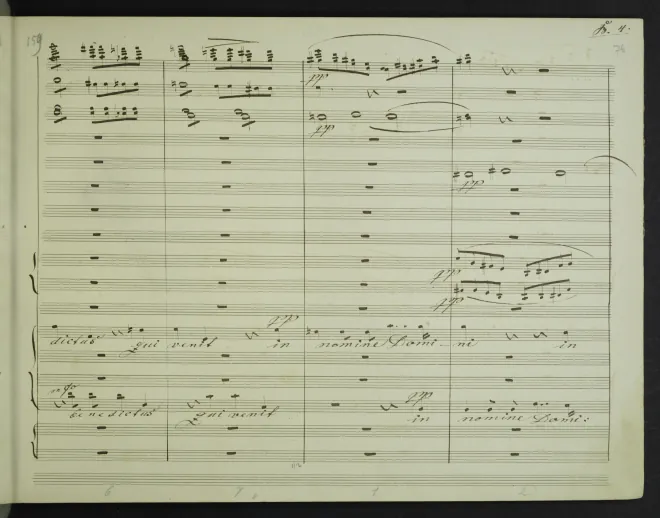 159
76
ppp
ppp
ppp
ppp
ppp
ppp
dictus qui venit in nomine Domi- ni in
ppp
be ne dictus qui venit in nomine Domi:
6 7 1 2